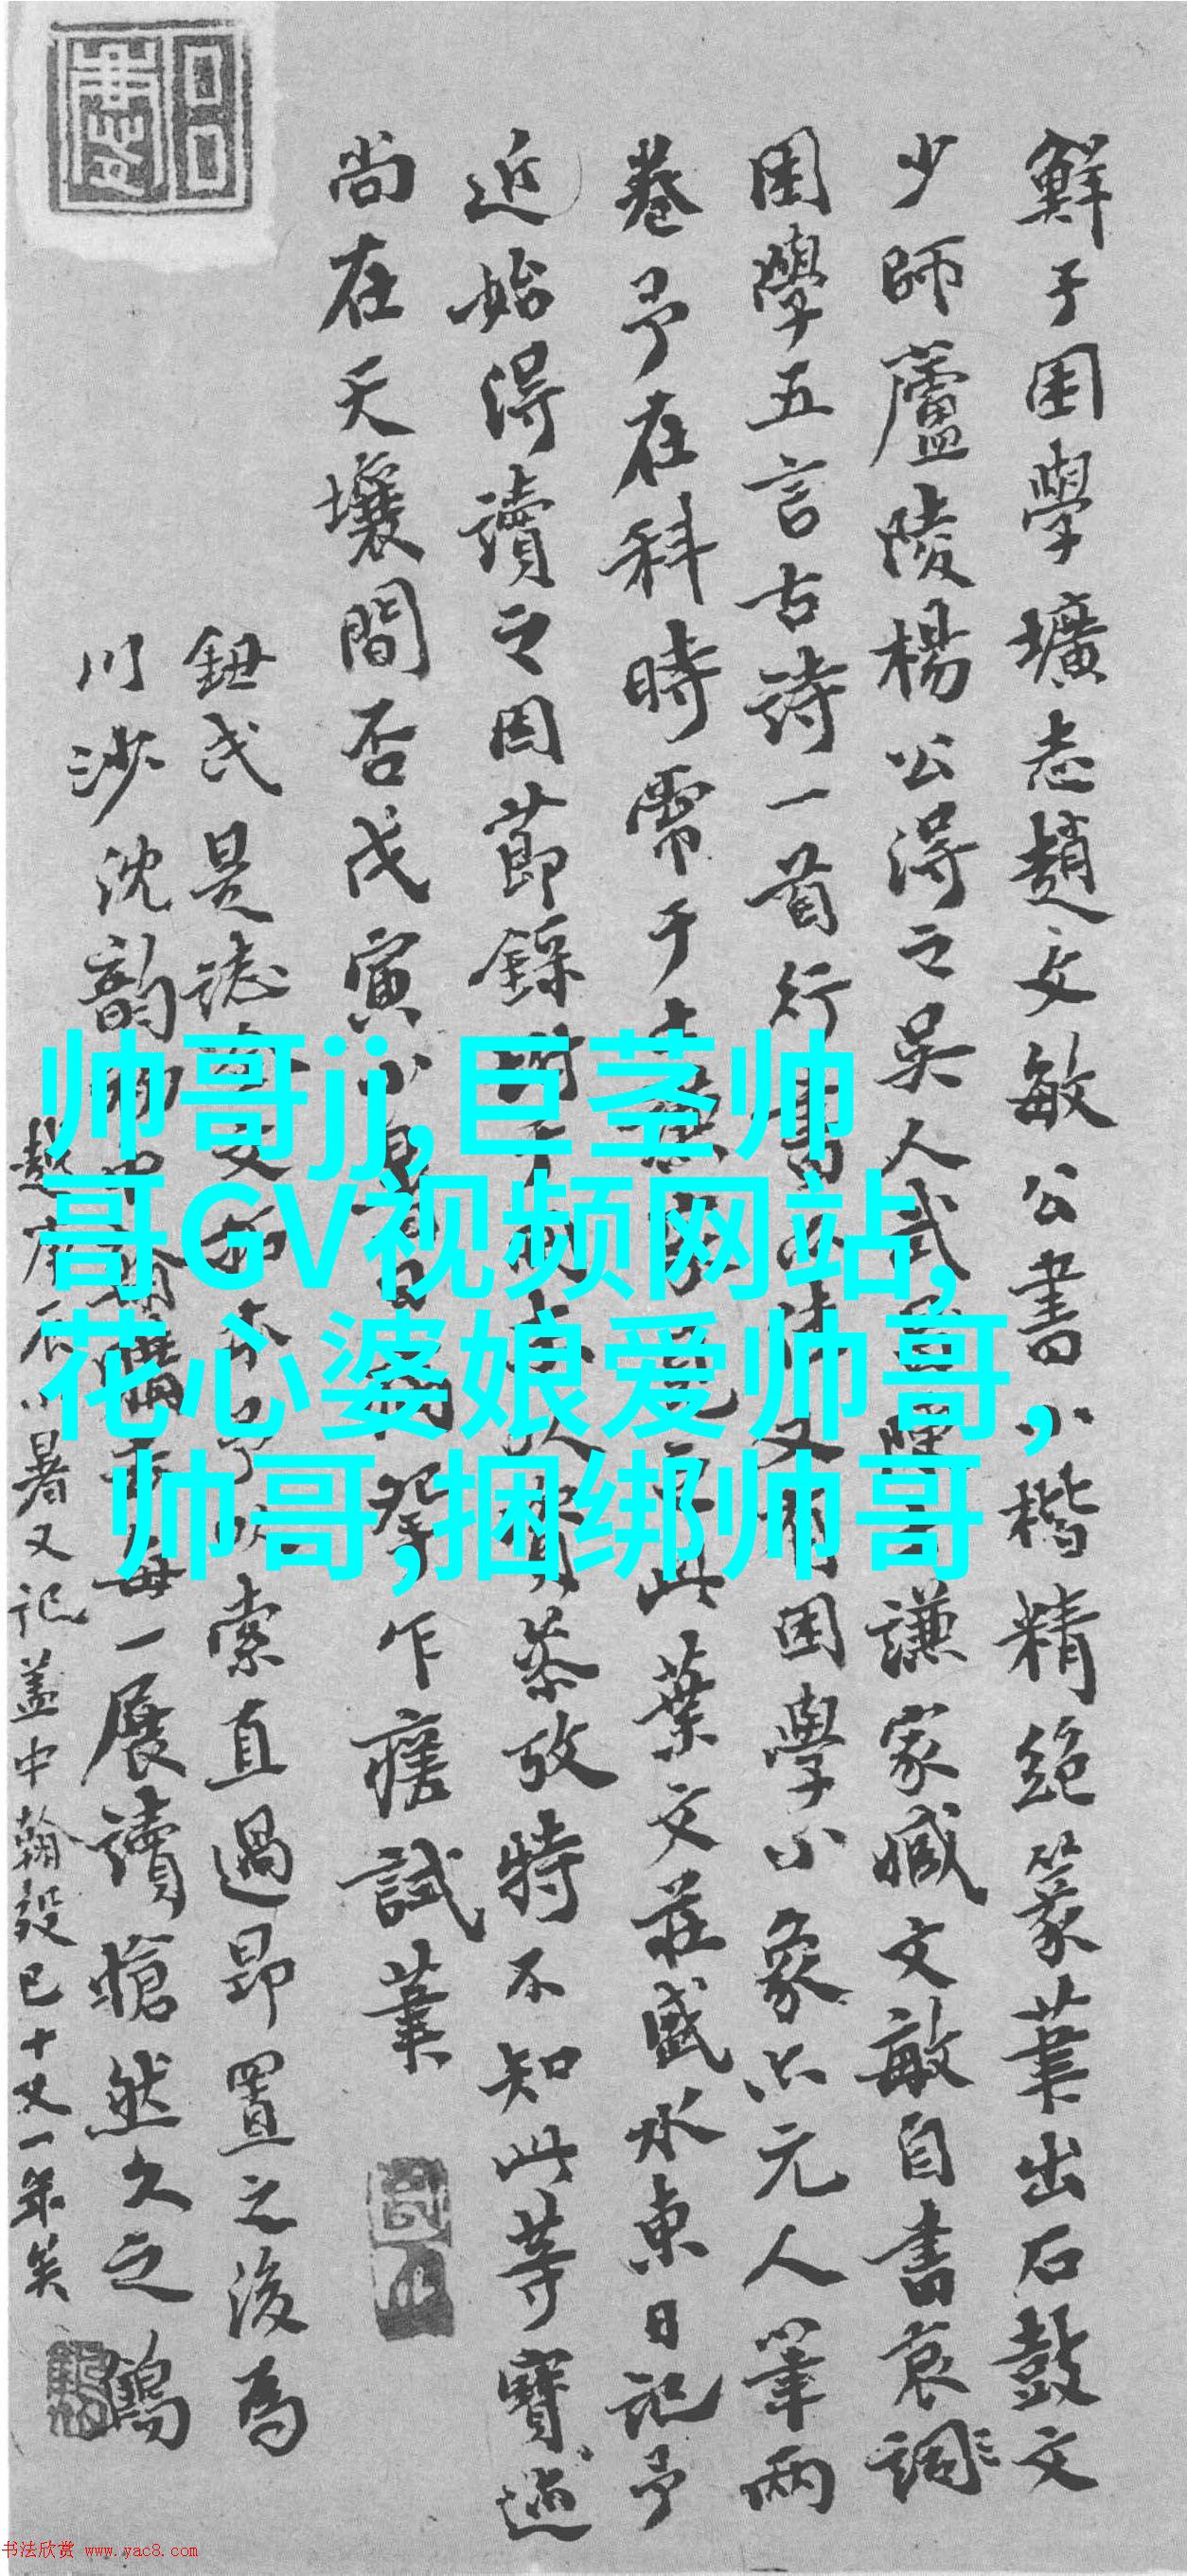 鮮于困學壙志趙文敏公書小楷精絕篆筆出石鼓文
少師蘆陵楊公得之吴人武謙家臧文敏自書哀詞
困學五言古詩一首行書法又有困學小象六元人筆兩
卷予在科時需于家見之此葉文莊盛水東日記予
近始得讀之因節錄附于以資恭攷特不知此等寶迹
尚在天壤間否戊寅小乍痊試筆
鈕氏是誌索直過昂置之後為
川沙沈韵初每一展讀愴然久之鶴
小暑又記蓋中翰歿已十又一年矣
帅哥jj,巨茎帅
哥GV视频网站,
花心婆娘爱帅哥,
帅哥,捆绑帅哥
书法欣赏 www.yac8.com